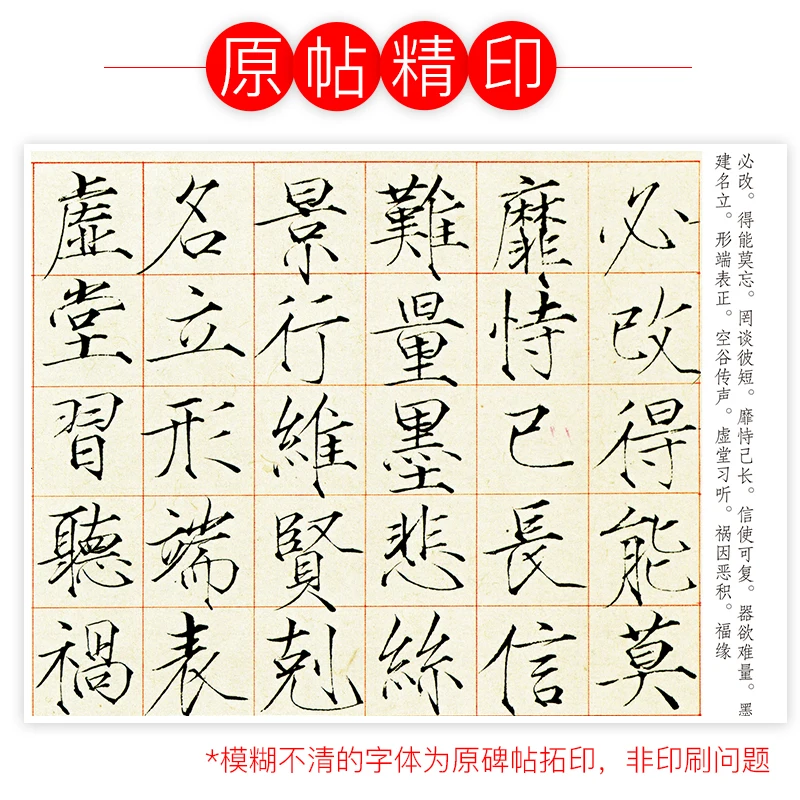 原帖精印
必改得能莫
靡恃己長信
難量墨悲絲
景行維賢剋
名立形端表
虛堂習聽禍
必改。得能莫忘。罔谈彼短。靡恃己长。信使可复。器欲难量。墨
建名立。形端表正。空谷传声。虚堂习听。祸因恶积。福缘
*模糊不清的字体为原碑帖拓印，非印刷问题